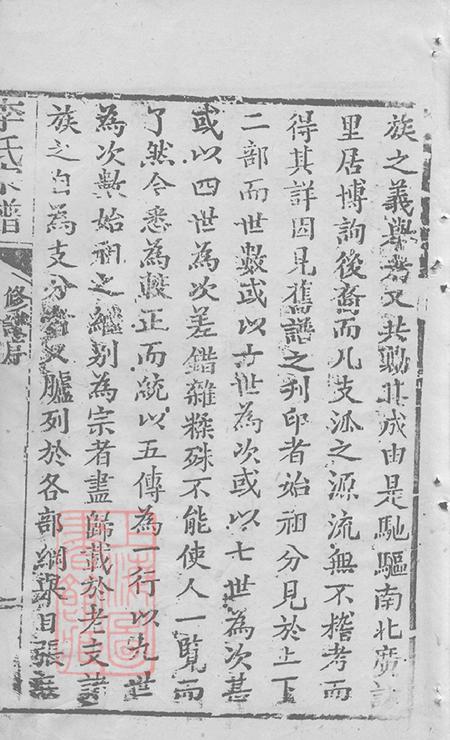 族之義舉者又共勷其成由是馳驅南北廣詢
里居博詢後裔而凡支派之源流無不稽考而
得其詳因見舊譜之刋印者始祖分見於上下
二部而世數或以六世為次或以七世為次甚
或以四世為次差錯雜糅殊不能使人一覽而
了然今悉為較正而統以五傳為一行以九世
為次數始祖之繼别為宗者盡歸載於老支諸
族之自為支分者又臚列於各部綱舉目張
李氏宗譜
修譜序